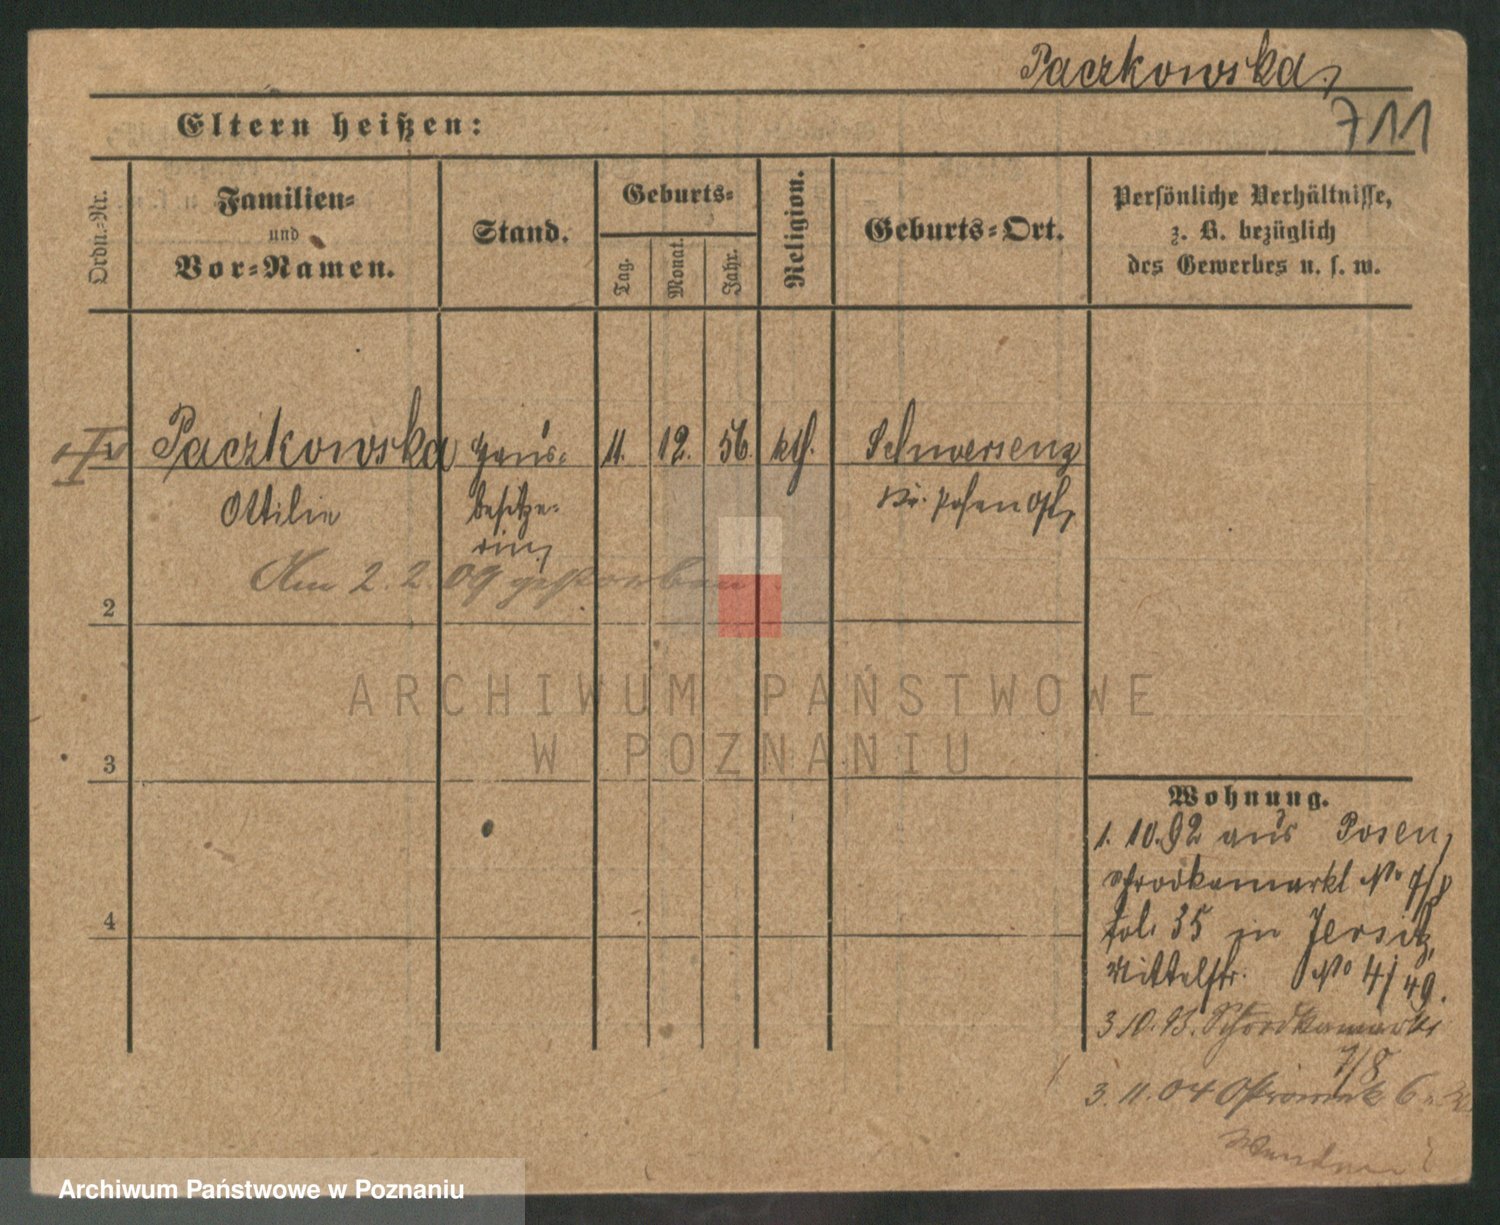 Paczkowska,
711
Eltern heißen:
Ordn.-Nr.
Familien-
und
Vor-Namen.
Stand.
Geburts-
Tag.
Monat.
Jahr.
Religion.
Geburts-Ort.
Persönliche Verhältnisse,
z. B. bezüglich
des Gewerbes u. s. w.
1
Paczkowska Haus- 11. 12. 56. kth. Schwersenz
Ottilie besitze- Kr. Posen Ost,
rin,
Am 2. 2. 09 gestorben
2
ARCHIWUM PAŃSTWOWE
W POZNANIU
3
4
Wohnung.
1. 10.92 aus Posen,
Schrodkamarkt No 7/8
fol. 35 in Jersitz,
Mittelstr. No 4/49.
3.10.93. Schrodkamarkt
7/8
3. 11. 04 Ostrowek 6
Archiwum Państwowe w Poznaniu